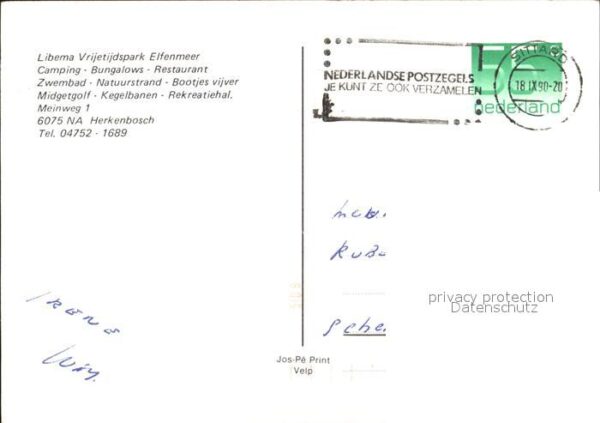 Libema Vrijetijdspark Elfenmeer
Camping - Bungalows - Restaurant
Zwembad - Natuurstrand - Bootjes vijver
Midgetgolf - Kegelbanen - Rekreatiehal.
Meinweg 1
6075 NA Herkenbosch
Tel. 04752 - 1689
NEDERLANDSE POSTZEGELS
JE KUNT ZE OOK VERZAMELEN
55
nederland
SITTARD
18 IX 90-20
privacy protection
Datenschutz
Sche
Irene
Wim.
Jos-Pé Print
Velp